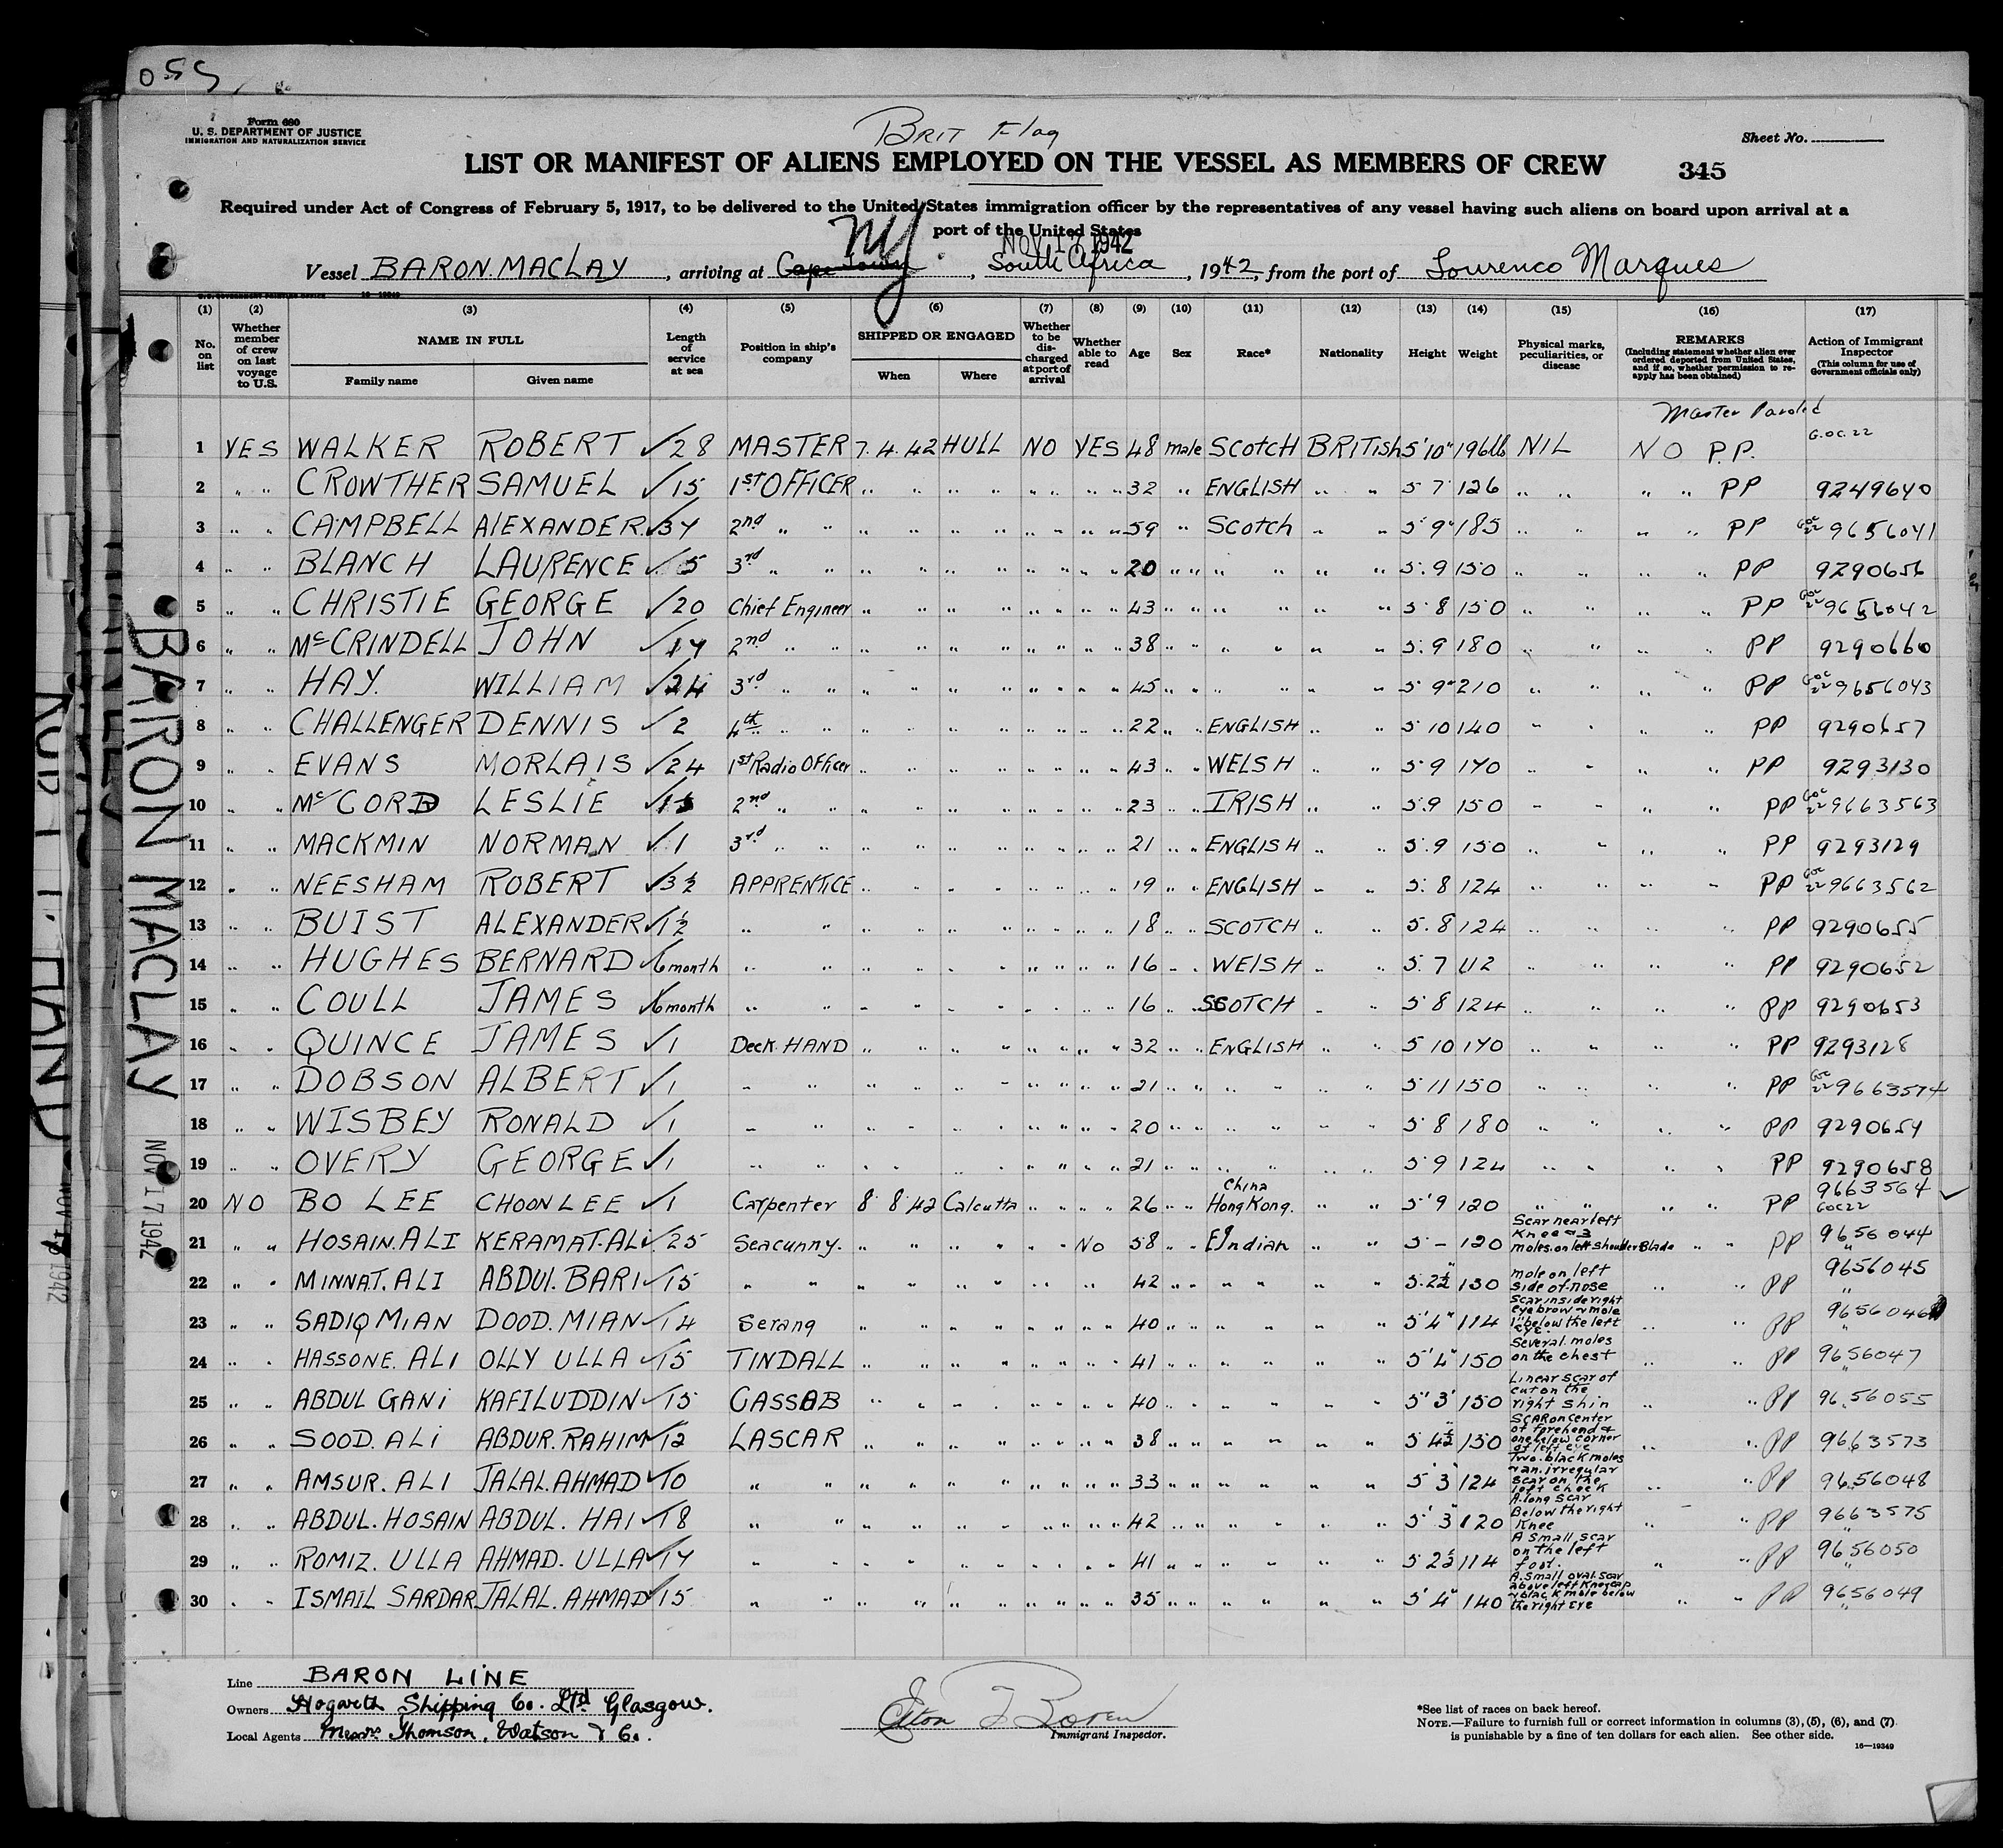 055
Form 680
U. S. DEPARTMENT OF JUSTICE
IMMIGRATION AND NATURALIZATION SERVICE
BRIT Flag
Sheet No.
LIST OR MANIFEST OF ALIENS EMPLOYED ON THE VESSEL AS MEMBERS OF CREW
345
Required under Act of Congress of February 5, 1917, to be delivered to the United States immigration officer by the representatives of any vessel having such aliens on board upon arrival at a
port of the United States
NY. NOV 17 1942
Vessel BARON. MACLAY, arriving at Cape Town, South Africa, 1942, from the port of Lourenco Marques
(1) (2) (3) (4) (5) (6) (7) (8) (9) (10) (11) (12) (13) (14) (15) (16) (17)
No. on list | Whether member of crew on last voyage to U.S. | NAME IN FULL Family name Given name | Length of service at sea | Position in ship's company | SHIPPED OR ENGAGED When Where | Whether to be discharged at port of arrival | Whether able to read | Age | Sex | Race* | Nationality | Height | Weight | Physical marks, peculiarities, or disease | REMARKS (Including statement whether alien ever ordered deported from United States, and if so, whether permission to reapply has been obtained) | Action of Immigrant Inspector (This column for use of Government officials only)
Master Paroled
1 YES WALKER ROBERT ✓ 28 MASTER 7.4.42 HULL NO YES 48 male SCOTCH BRITISH 5'10" 196lb NIL NO P.P. G.O.C. 22
2 " " CROWTHER SAMUEL ✓ 15 1ST OFFICER " " " " " " " " 32 " ENGLISH " " 5 7 126 " " " " PP 9249640
3 " " CAMPBELL ALEXANDER. ✓ 34 2nd " " " " " " " " " " 59 " Scotch " " 5'9" 185 " " " " PP GOC 22 9656041
4 " " BLANCH LAURENCE ✓ 5 3rd " " " " " " " " " " 20 " " " " " " 5.9 150 " " " " PP 9290656
5 " " CHRISTIE GEORGE ✓ 20 Chief Engineer " " " " " " " " 43 " " " " " " 5 8 150 " " " " PP GOC 22 9656042
6 " " McCRINDELL JOHN ✓ 14 2nd " " " " " " " " " " 38 " " " " " " 5.9 180 " " " " PP 9290660
7 " " HAY. WILLIAM ✓ 24 3rd " " " " " " " " " " 45 " " " " " " 5 9" 210 " " " " PP GOC 22 9656043
8 " " CHALLENGER DENNIS ✓ 2 4th " " " " " " " " " " 22 " " ENGLISH " " 5 10 140 " " " " PP 9290657
9 " " EVANS MORLAIS ✓ 24 1ST Radio Officer " " " " " " " " 43 " " WELSH " " 5 9 170 " " " " PP 9293130
10 " " McCORD LESLIE ✓ 2nd " " " " " " " " " " 23 " " IRISH " " 5.9 150 " " " " PP GOC 22 9663563
11 " " MACKMIN NORMAN ✓ 1 3rd " " " " " " " " " " 21 " " ENGLISH " " 5.9 150 " " " " PP 9293129
12 " " NEESHAM ROBERT ✓ 3½ APPRENTICE " " " " " " " " 19 " " ENGLISH " " 5.8 124 " " " " PP GOC 22 9663562
13 " " BUIST ALEXANDER ✓ 1½ " " " " " " " " " " 18 " " SCOTCH " " 5.8 124 " " " " PP 9290655
14 " " HUGHES BERNARD ✓ 6 month " " " " " " " " " " 16 " " WELSH " " 5.7 112 " " " " PP 9290652
15 " " COULL JAMES ✓ 6 month " " " " " " " " " " 16 " " SCOTCH " " 5 8 124 " " " " PP 9290653
16 " " QUINCE JAMES ✓ 1 Deck HAND " " " " " " " " 32 " " ENGLISH " " 5 10 170 " " " " PP 9293128
17 " " DOBSON ALBERT ✓ 1 " " " " " " " " " " 21 " " " " " " 5 11 150 " " " " PP GOC 22 9663574
18 " " WISBEY RONALD ✓ 1 " " " " " " " " " " 20 " " " " " " 5 8 180 " " " " PP 9290654
19 " " OVERY GEORGE ✓ 1 " " " " " " " " " " 21 " " " " " " 5 9 124 " " " " PP 9290658
20 NO BO LEE CHOON LEE ✓ 1 Carpenter 8 8 42 Calcutta " " " " 26 " " China Hong Kong. " " 5'9 120 " " " " PP 9663564 GOC 22 ✓
21 " " HOSAIN. ALI KERAMAT. ALI ✓ 25 Seacunny. " " " " " " No 58 " " E Indian " " 5 - 120 Scar near left Knee & 3 moles. on left Shoulder Blade " " PP 9656044
22 " " MINNAT. ALI ABDUL. BARI ✓ 15 " " " " " " " " " " 42 " " " " " " 5.2½ 130 mole on left side of nose " " PP 9656045
23 " " SADIQ MIAN DOOD. MIAN ✓ 14 Serang " " " " " " " " 40 " " " " " " 5'4" 114 Scar inside right eyebrow & mole 1" below the left eye. " " PP 9656046
24 " " HASSONE. ALI OLLY ULLA ✓ 15 TINDALL " " " " " " " " 41 " " " " " " 5'4" 150 Several moles on the chest " " PP 9656047
25 " " ABDUL GANI KAFILUDDIN ✓ 15 CASSAB " " " " " " " " 40 " " " " " " 5' 3' 150 Linear scar of cut on the right shin " " PP 9656055
26 " " SOOD. ALI ABDUR. RAHIM ✓ 12 LASCAR " " " " " " " " 38 " " " " " " 5 4½ 130 SCAR on center of forehead & one below corner of left eye " " PP 9663573
27 " " AMSUR. ALI JALAL. AHMAD ✓ 10 " " " " " " " " " " 33 " " " " " " 5 3 124 Two. black moles & an. irregular scar on the left cheek " " PP 9656048
28 " " ABDUL. HOSAIN ABDUL. HAI ✓ 18 " " " " " " " " " " 42 " " " " " " 5' 3" 120 A. long scar Below the right Knee " " PP 9663575
29 " " ROMIZ. ULLA AHMAD. ULLA ✓ 14 " " " " " " " " " " 41 " " " " " " 5 2½ 114 A Small scar on the left foot. " " PP 9656050
30 " " ISMAIL SARDAR JALAL. AHMAD ✓ 15 " " " " " " " " " " 35 " " " " " " 5' 4" 140 A. Small oval scar above left Kneecap & black mole below the right eye " " PP 9656049
BARON MACLAY
NOV 17 1942
Line BARON LINE
Owners Hogarth Shipping Co. Ltd Glasgow.
Local Agents Messrs Thomson, Watson & Co.
Immigrant Inspector.
*See list of races on back hereof.
NOTE.—Failure to furnish full or correct information in columns (3), (5), (6), and (7)
is punishable by a fine of ten dollars for each alien. See other side.
16—19349